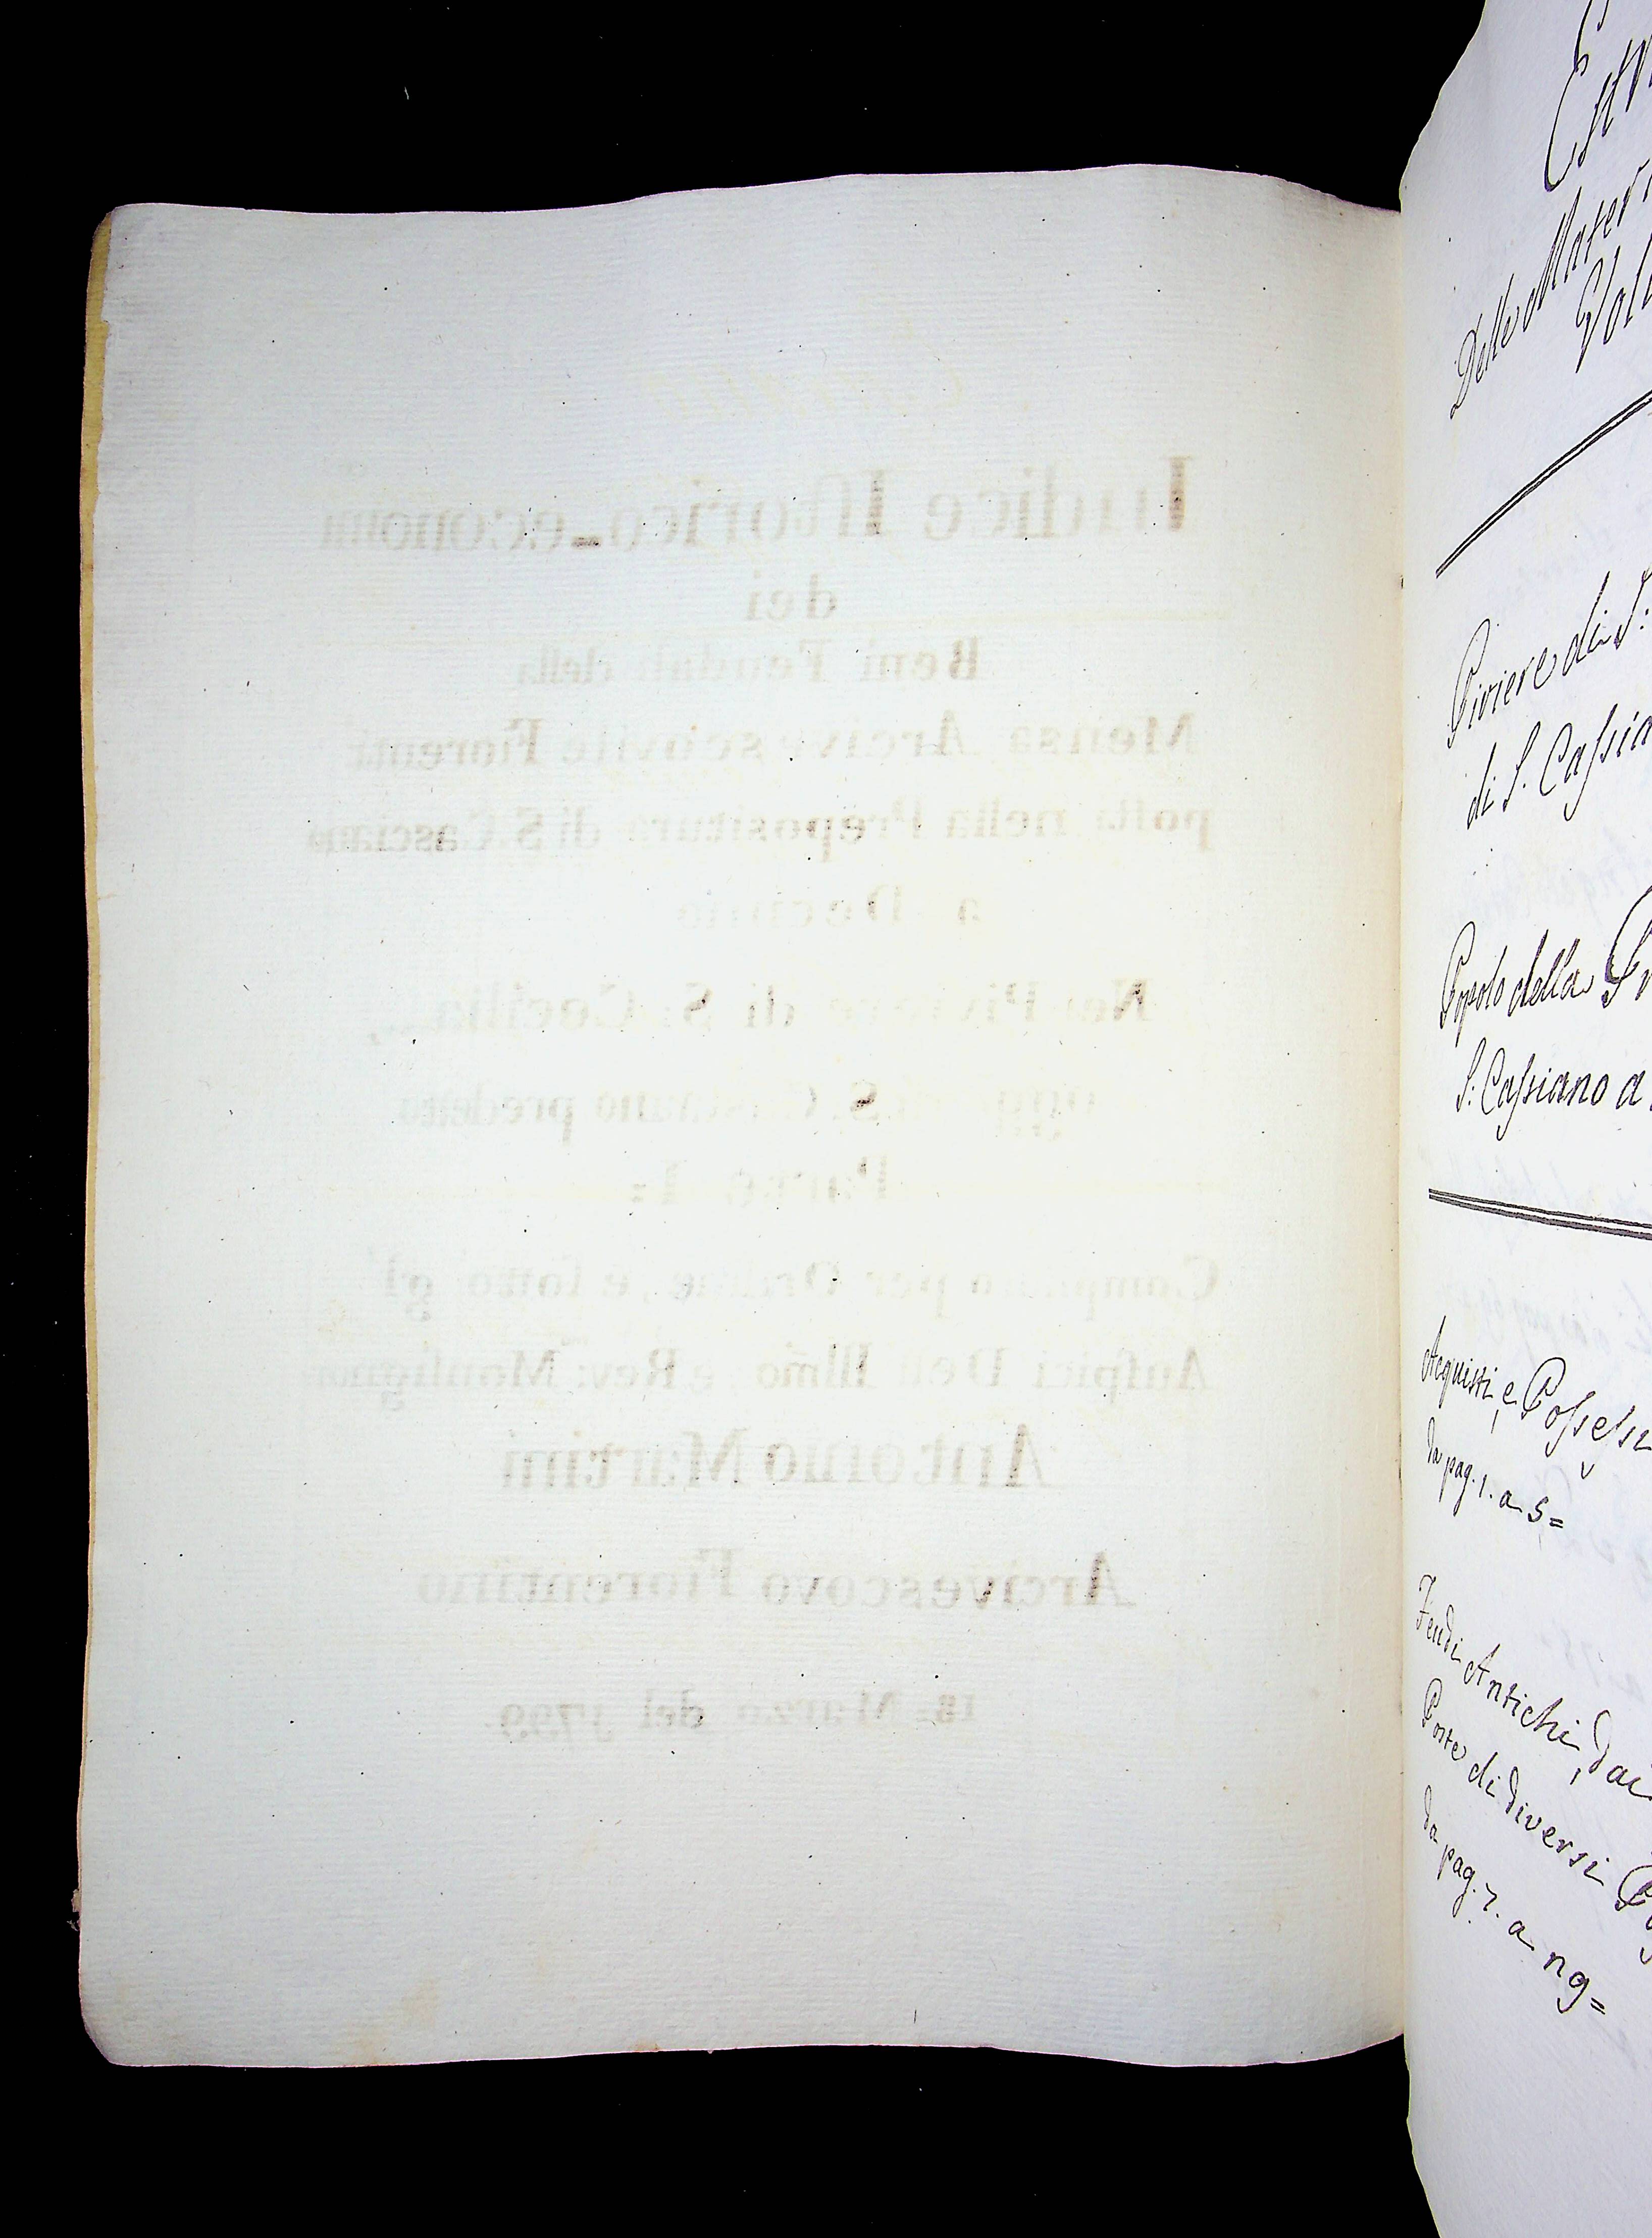 Indice Istorico-econom
dei
Beni Feudali della
Mensa Arcivescovile Fiorenti
posta nella Prepositura di S. Casciano
a Decimo
Nel Piviere di S. Cecilia
oggi di S. Casciano predetto
Parte I:
Compilato per Ordine, e sotto gl'
Auspici Dell' Illm̃o e Rev: Monsignor
Antonio Martini
Arcivescovo Fiorentino
18= Marzo del 1799
Delle Mater
Piviere di S:
di S. Cassia
Popolo della
S: Cassiano a
Acquisti, e Possessi
da pag. 1. a 5=
Feudi Antichi, dai
Poste di diversi
da pag. 7. a ng=